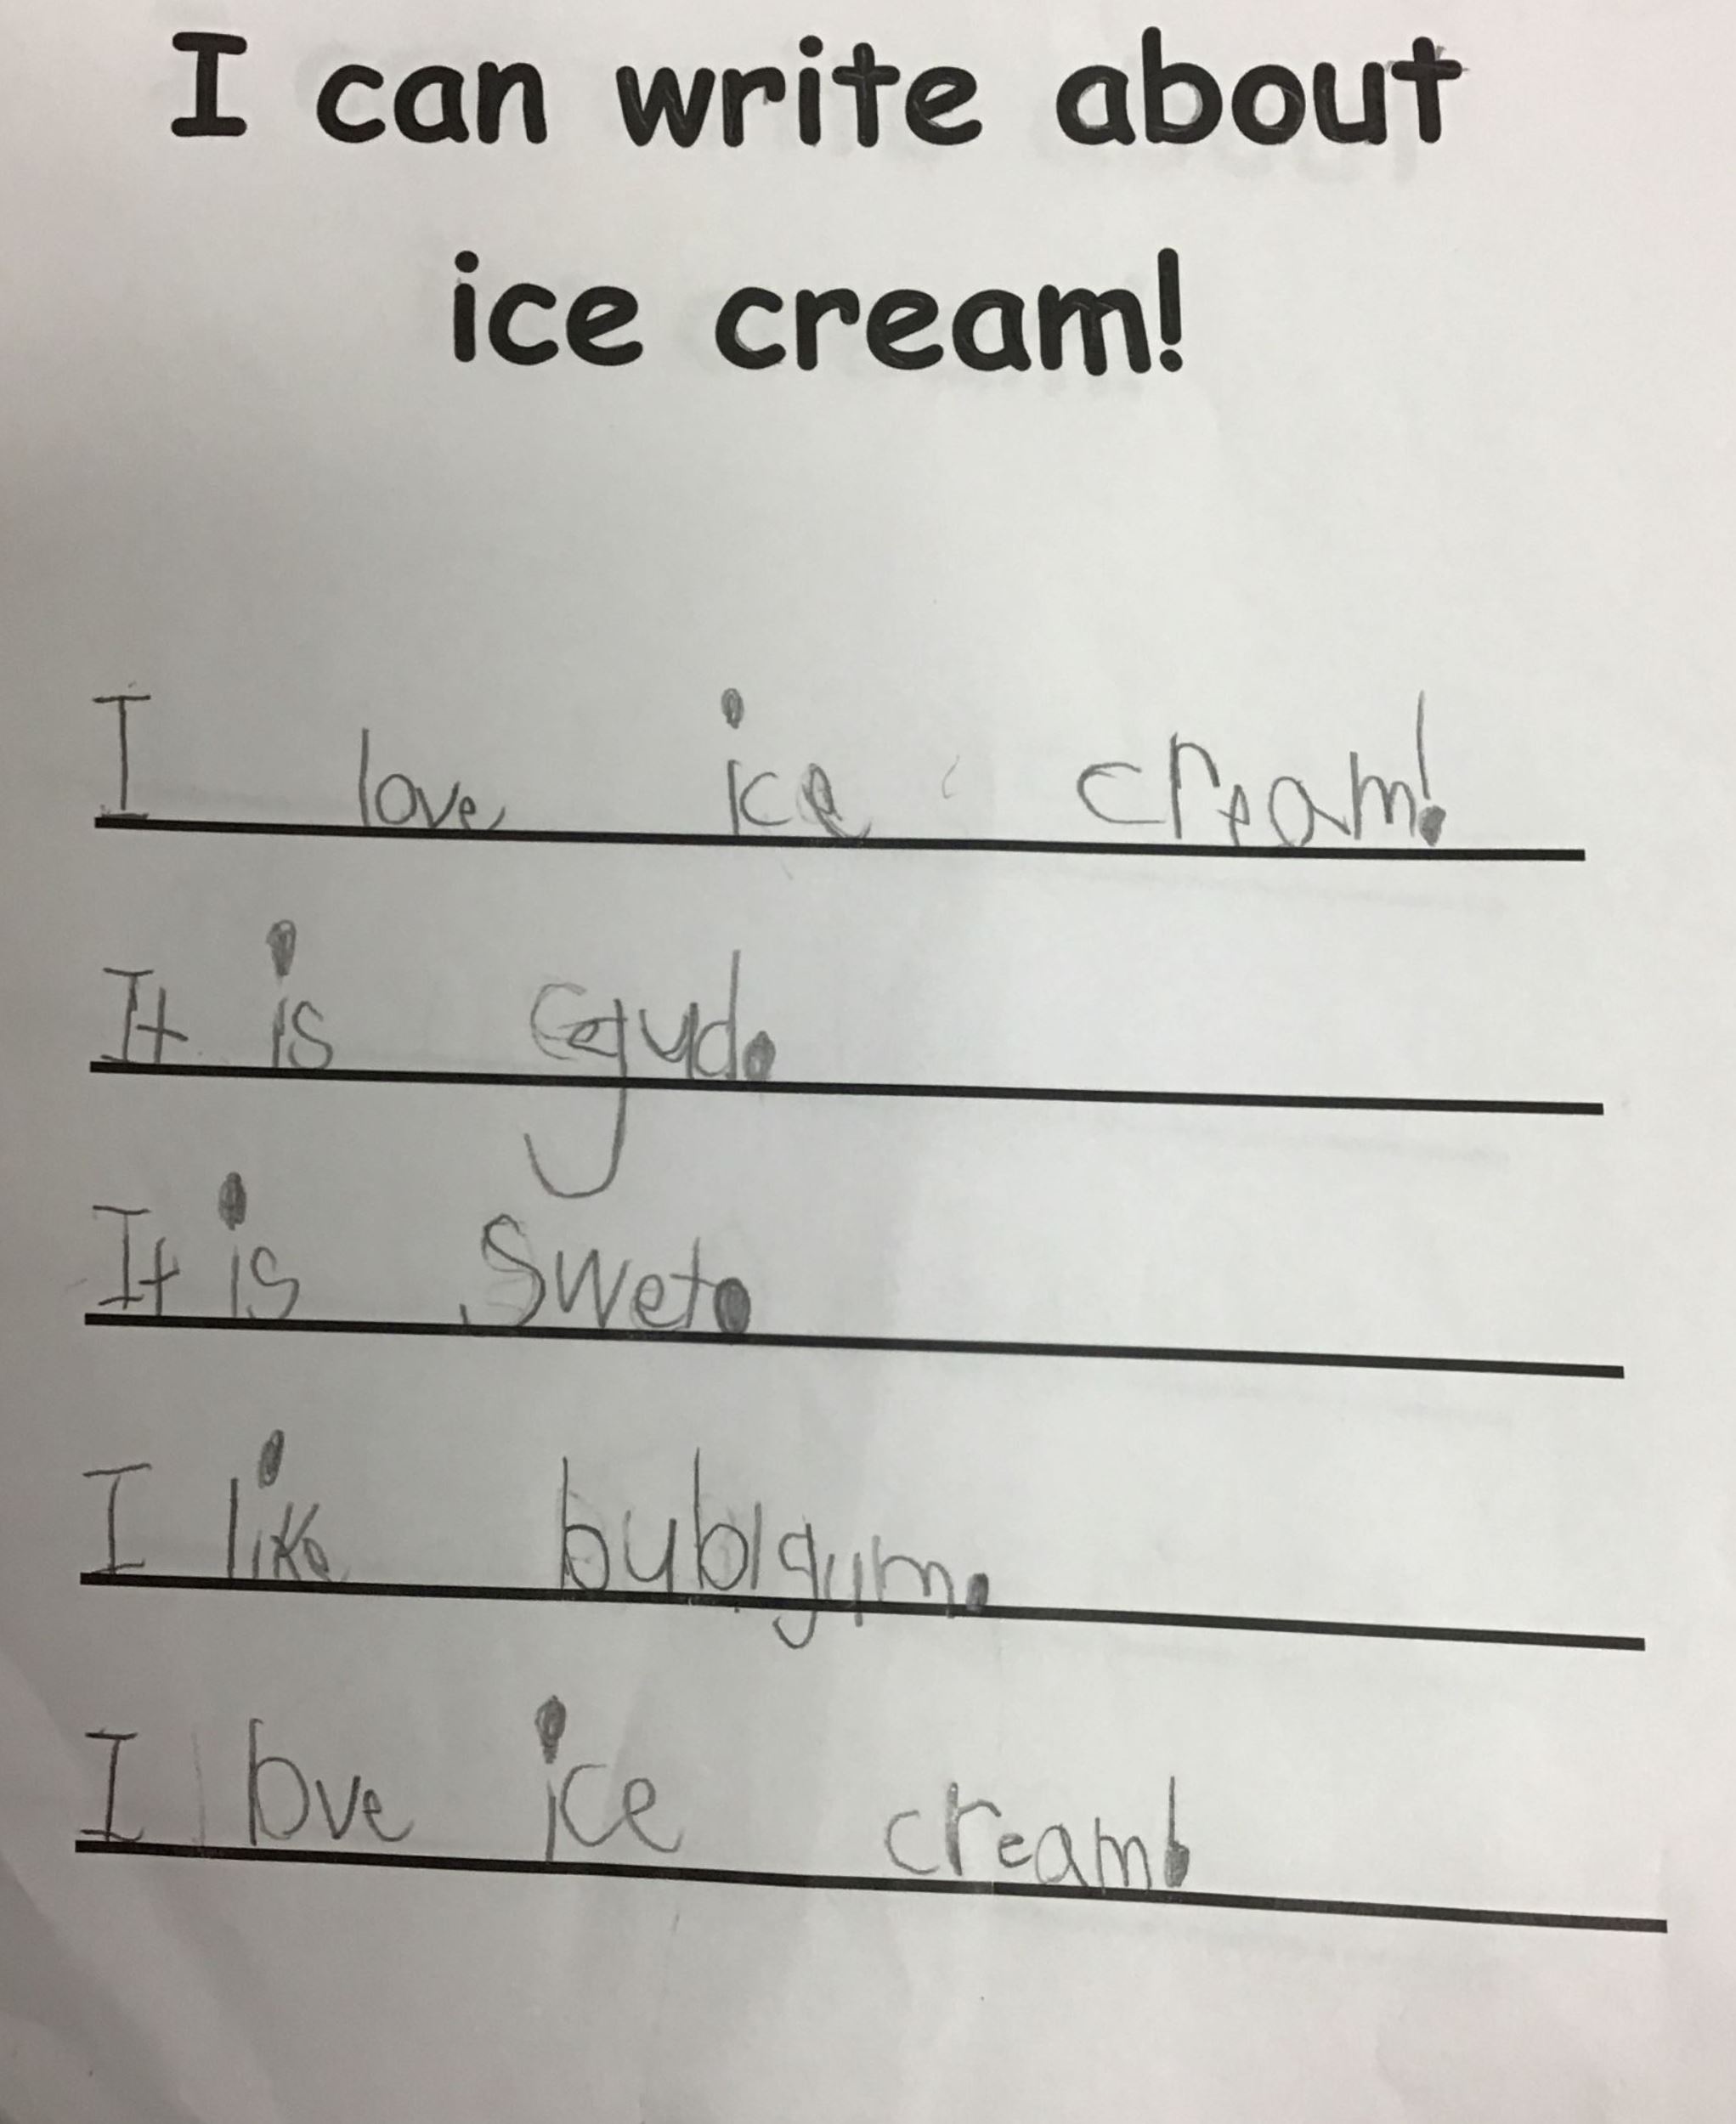 I can write about
ice cream!
I love ice cream!
It is gud.
It is Swet.
I like bublgum.
I love ice cream!